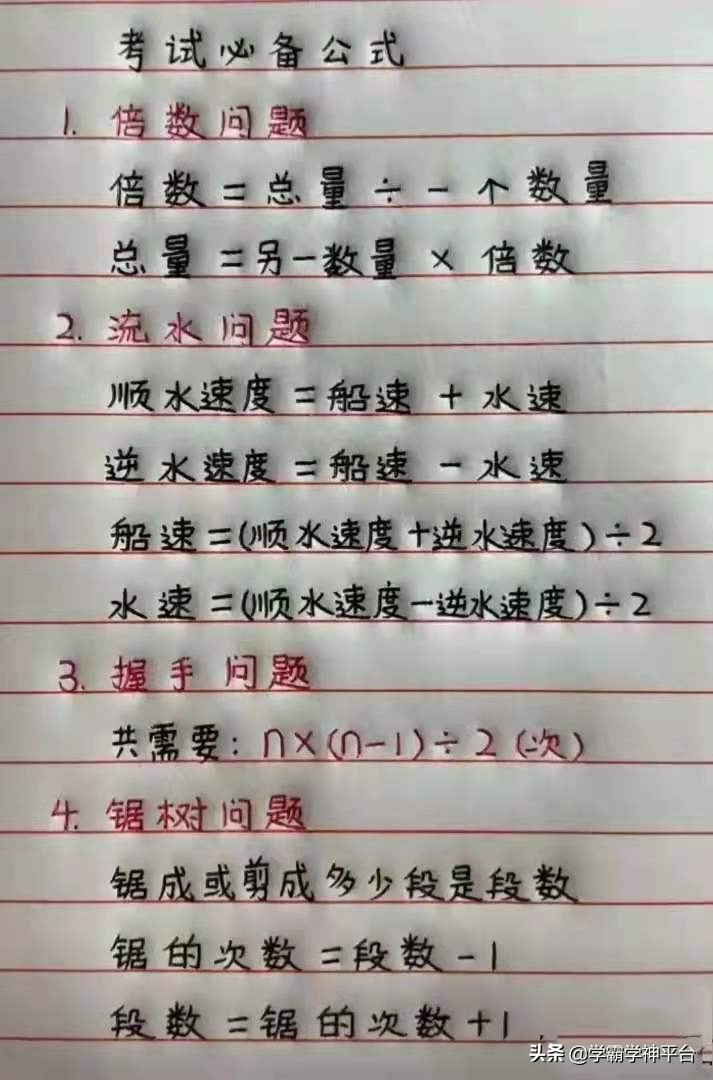 考试必备公式
1. 倍数问题
倍数=总量÷一个数量
总量=另一数量×倍数
2. 流水问题
顺水速度=船速+水速
逆水速度=船速-水速
船速=(顺水速度+逆水速度)÷2
水速=(顺水速度-逆水速度)÷2
3. 握手问题
共需要: n×(n-1)÷2(次)
4. 锯树问题
锯成或剪成多少段是段数
锯的次数=段数-1
段数=锯的次数+1.
头条 @学霸学神平台